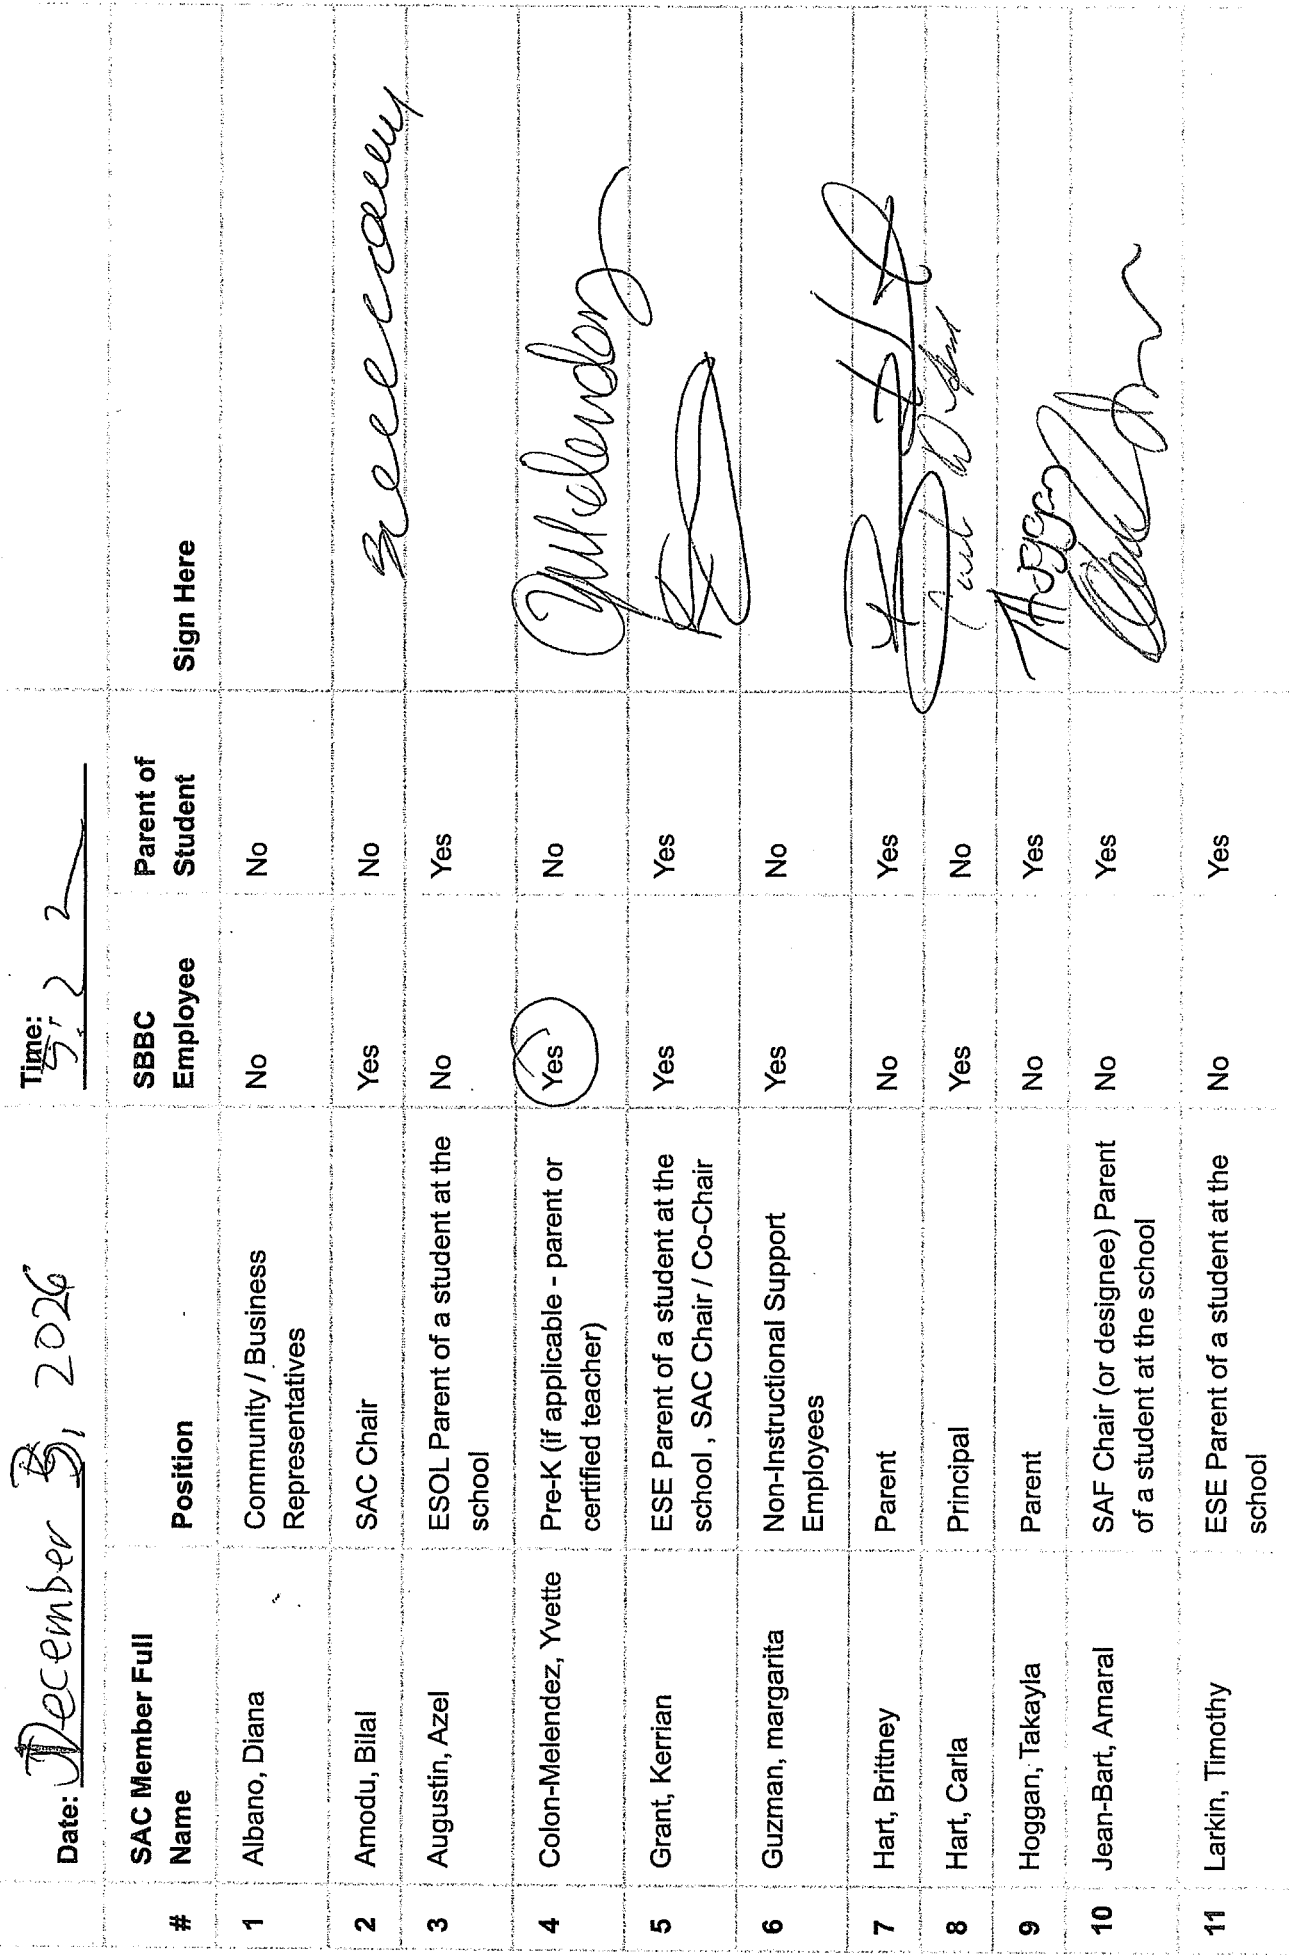 Date: December 3, 2026 Time: 5:22
# SAC Member Full Name Position SBBC Employee Parent of Student Sign Here
1 Albano, Diana Community / Business Representatives No No
2 Amodu, Bilal SAC Chair Yes No
3 Augustin, Azel ESOL Parent of a student at the school No Yes
4 Colon-Melendez, Yvette Pre-K (if applicable - parent or certified teacher) Yes No
5 Grant, Kerrian ESE Parent of a student at the school , SAC Chair / Co-Chair Yes Yes
6 Guzman, margarita Non-Instructional Support Employees Yes No
7 Hart, Brittney Parent No Yes
8 Hart, Carla Principal Yes No
9 Hoggan, Takayla Parent No Yes
10 Jean-Bart, Amaral SAF Chair (or designee) Parent of a student at the school No Yes
11 Larkin, Timothy ESE Parent of a student at the school No Yes